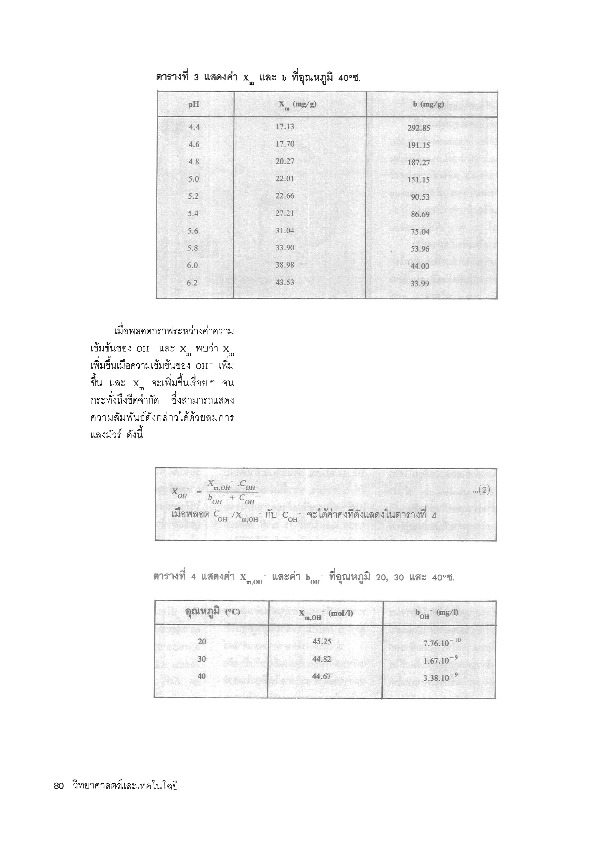 ตารางที่ 3 แสดงค่า Xm และ b ที่อุณหภูมิ 40°ซ.
pH Xm (mg/g) b (mg/g)
4.4 17.13 292.85
4.6 17.70 191.15
4.8 20.27 187.27
5.0 22.01 151.15
5.2 22.66 90.53
5.4 27.21 86.69
5.6 31.04 75.04
5.8 33.90 53.96
6.0 38.98 44.00
6.2 43.53 33.99
เมื่อพลอตกราฟระหว่างค่าความ
เข้มข้นของ OH⁻ และ Xm พบว่า Xm
เพิ่มขึ้นเมื่อความเข้มข้นของ OH⁻ เพิ่ม
ขึ้น และ Xm จะเพิ่มขึ้นเรื่อย ๆ จน
กระทั่งถึงขีดจำกัด ซึ่งสามารถแสดง
ความสัมพันธ์ดังกล่าวได้ด้วยสมการ
แลงมัวร์ ดังนี้
X OH⁻ = X m,OH⁻ .C OH⁻ / b OH⁻ + C OH⁻ ...(2)
เมื่อพลอต C OH⁻ /X m,OH⁻ กับ C OH⁻ จะได้ค่าคงที่ดังแสดงในตารางที่ 4
ตารางที่ 4 แสดงค่า X m,OH⁻ และค่า b OH⁻ ที่อุณหภูมิ 20, 30 และ 40°ซ.
อุณหภูมิ (°C) X m,OH⁻ (mol/l) b OH⁻ (mg/l)
20 45.25 7.76.10⁻¹⁰
30 44.82 1.67.10⁻⁹
40 44.67 3.38.10⁻⁹
80 วิทยาศาสตร์และเทคโนโลยี